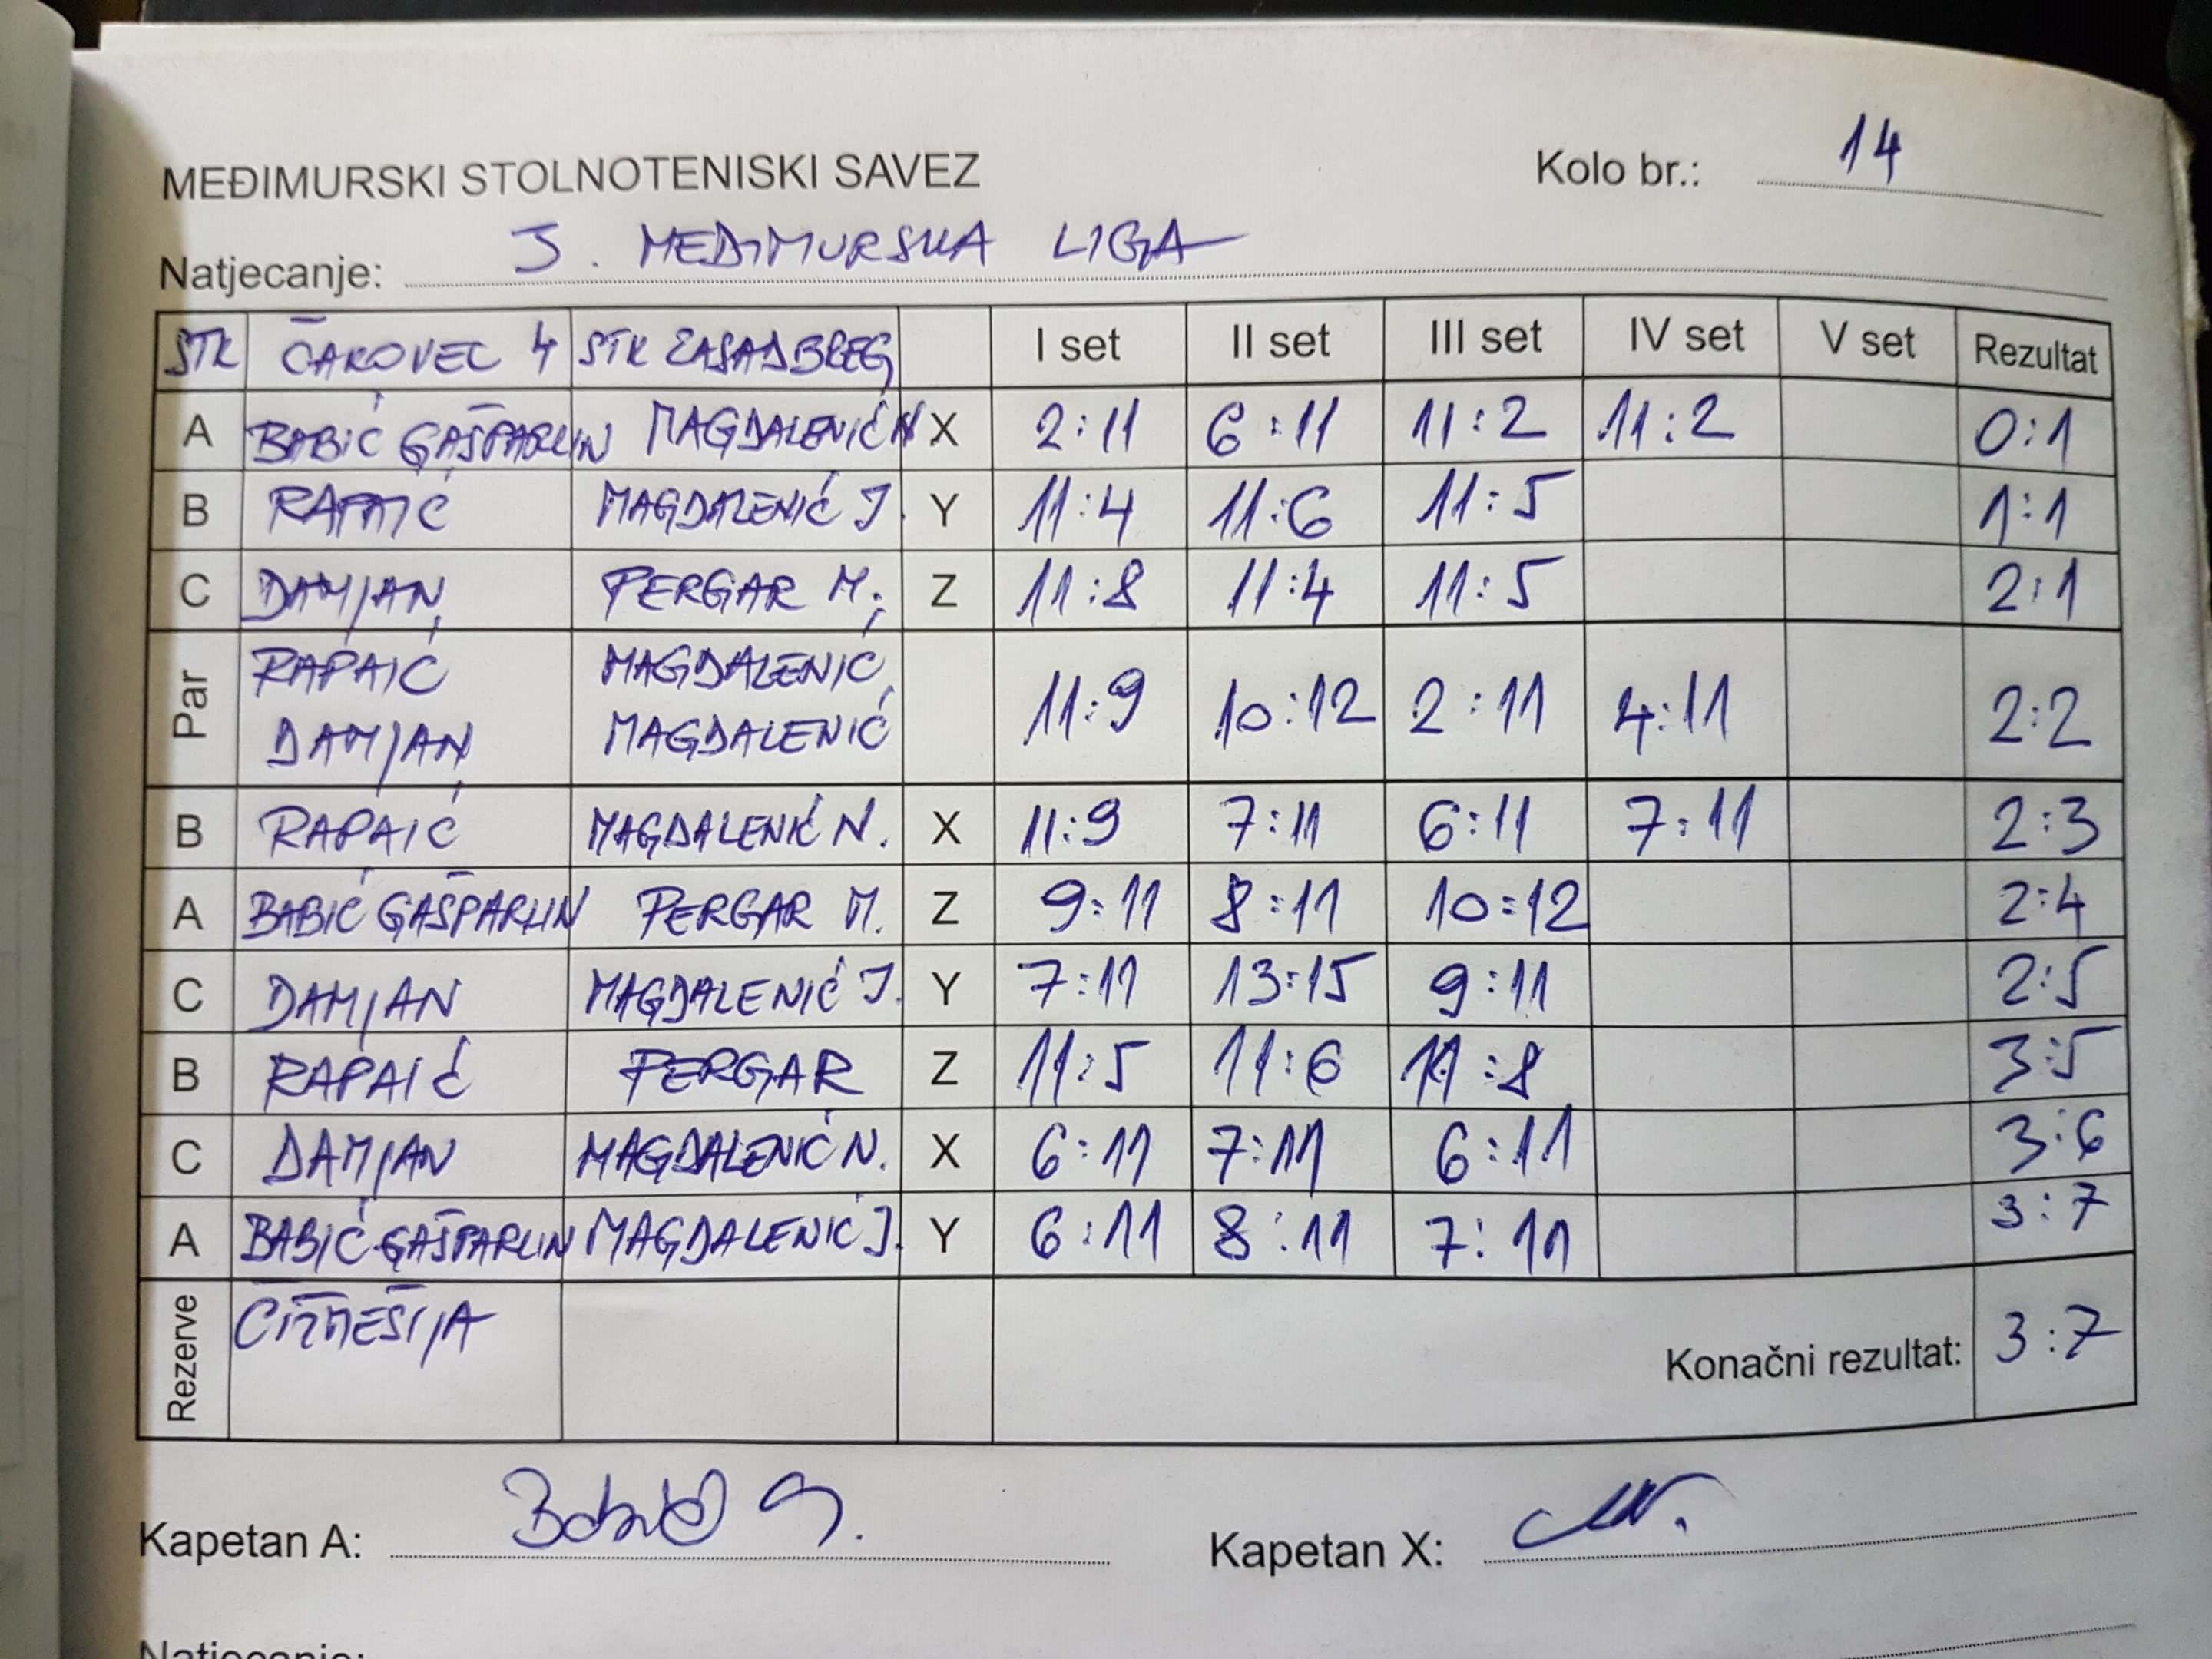 MEĐIMURSKI STOLNOTENISKI SAVEZ Kolo br.: 14
Natjecanje: J. MEĐIMURSKA LIGA
STK ČAKOVEC 4 STK ZASADBREG I set II set III set IV set V set Rezultat
A BABIĆ GAŠPARLIN MAGDALENIĆ N X 2:11 6:11 11:2 11:2 0:1
B RAPAIĆ MAGDALENIĆ J. Y 11:4 11:6 11:5 1:1
C DAMJAN PERGAR M. Z 11:8 11:4 11:5 2:1
Par RAPAIĆ MAGDALENIĆ 11:9 10:12 2:11 4:11 2:2
DAMJAN MAGDALENIĆ
B RAPAIĆ MAGDALENIĆ N. X 11:9 7:11 6:11 7:11 2:3
A BABIĆ GAŠPARLIN PERGAR M. Z 9:11 8:11 10:12 2:4
C DAMJAN MAGDALENIĆ J. Y 7:11 13:15 9:11 2:5
B RAPAIĆ PERGAR Z 11:5 11:6 11:8 3:5
C DAMJAN MAGDALENIĆ N. X 6:11 7:11 6:11 3:6
A BABIĆ GAŠPARLIN MAGDALENIĆ J. Y 6:11 8:11 7:11 3:7
Rezerve ČIŽMEŠIJA Konačni rezultat: 3:7
Kapetan A: Babić G. Kapetan X:
Natjecanje: